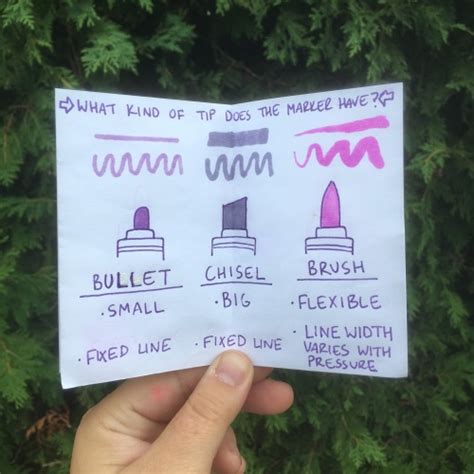 ⇨WHAT KIND OF TIP DOES THE MARKER HAVE?⇦
BULLET
·SMALL
·FIXED LINE
CHISEL
·BIG
·FIXED LINE
BRUSH
·FLEXIBLE
·LINE WIDTH
VARIES WITH
PRESSURE